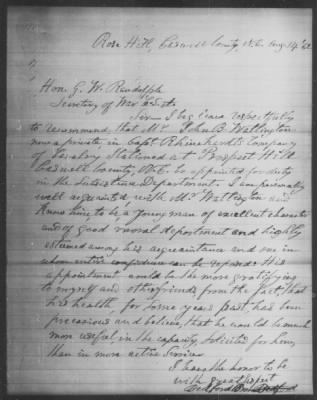 Rose Hill, Caswell County, N.C. Aug. 14 '62
Hon. G. W. Randolph
Secretary of War C.S.A.
Sir I beg leave respectfully
to recommend that Mr. John B. Watlington
now a private in Capt. Rhinehardt's Company
of Cavalry Stationed at Prospect Hill
Caswell County, N.C. be appointed for duty
in the Department. I am personally
well acquainted with Mr Watlington and
know him to be a young man of excellent character
and of good moral deportment and highly
esteemed among his acquaintance and one in
whom entire confidence can be reposed. His
appointment would be the more gratifying
to myself and other friends from the fact, that
his health, for some years past, has been
precarious and believe, that he would be much
more useful, in the capacity, solicited for him,
than in more active Service
I have the honor to be
with great respect
Bedford Brown